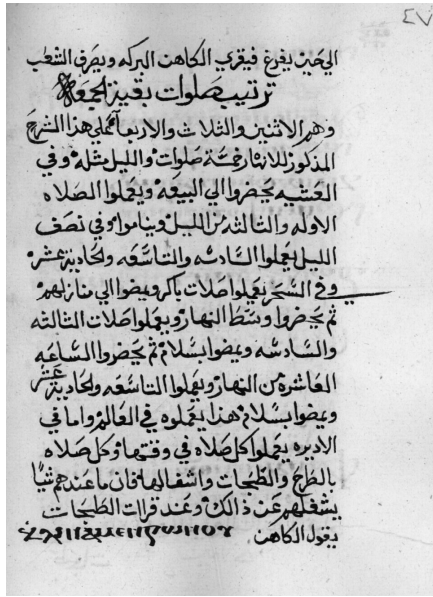 ٤٧
الي حين يفرغ فيقري الكاهن البركه ويصرف الشعب
ترتيب صلوات بقية الجمعه
وهم الاثنين والثلاث والاربعا علي هذا الشرح
المذكور للانهار خمسة صلوات والليل مثله وفي
العشيه يحضروا الي البيعه ويعملوا الصلاه
الاوله والثالثه من الليل ويناموا وفي نصف
الليل يعملوا السادسه والتاسعه والحادية عشر
وفي السحر يعملوا صلات باكر ويمضوا الي منازلهم
ثم يحضروا وسط النهار ويعملوا صلات الثالثه
والسادسه ويمضوا بسلام ثم يحضروا الساعه
العاشره من النهار ويعملوا التاسعه والحادية عشر
ويمضوا بسلام هذا يعملوه في العالم واما في
الاديره يعملوا كل صلاه في وقتها وكل صلاه
بالطرح والطبحات واشغالها فان ما عندهم شيا
يشغلهم عن ذالك وعند قرات الطبحات
يقول الكاهن